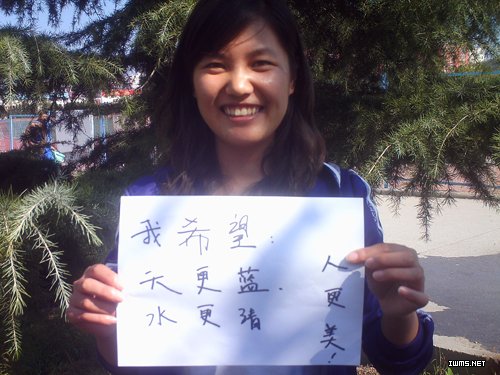 我希望：
天更蓝.
水更清
人更美！
IWMS.NET